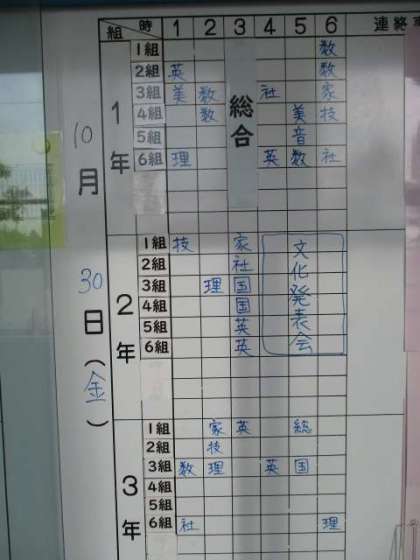 組 時 1 2 3 4 5 6 連絡
10月30日(金)
1年 総合
1組 数
2組 英 数
3組 美 数 社 家
4組 数 美 技
5組 音
6組 理 英 数 社
2年 文化発表会
1組 技 家
2組 社
3組 理 国
4組 国
5組 英
6組 英
3年
1組 家 英 総
2組 技
3組 数 理 英 国
4組
5組
6組 社 理